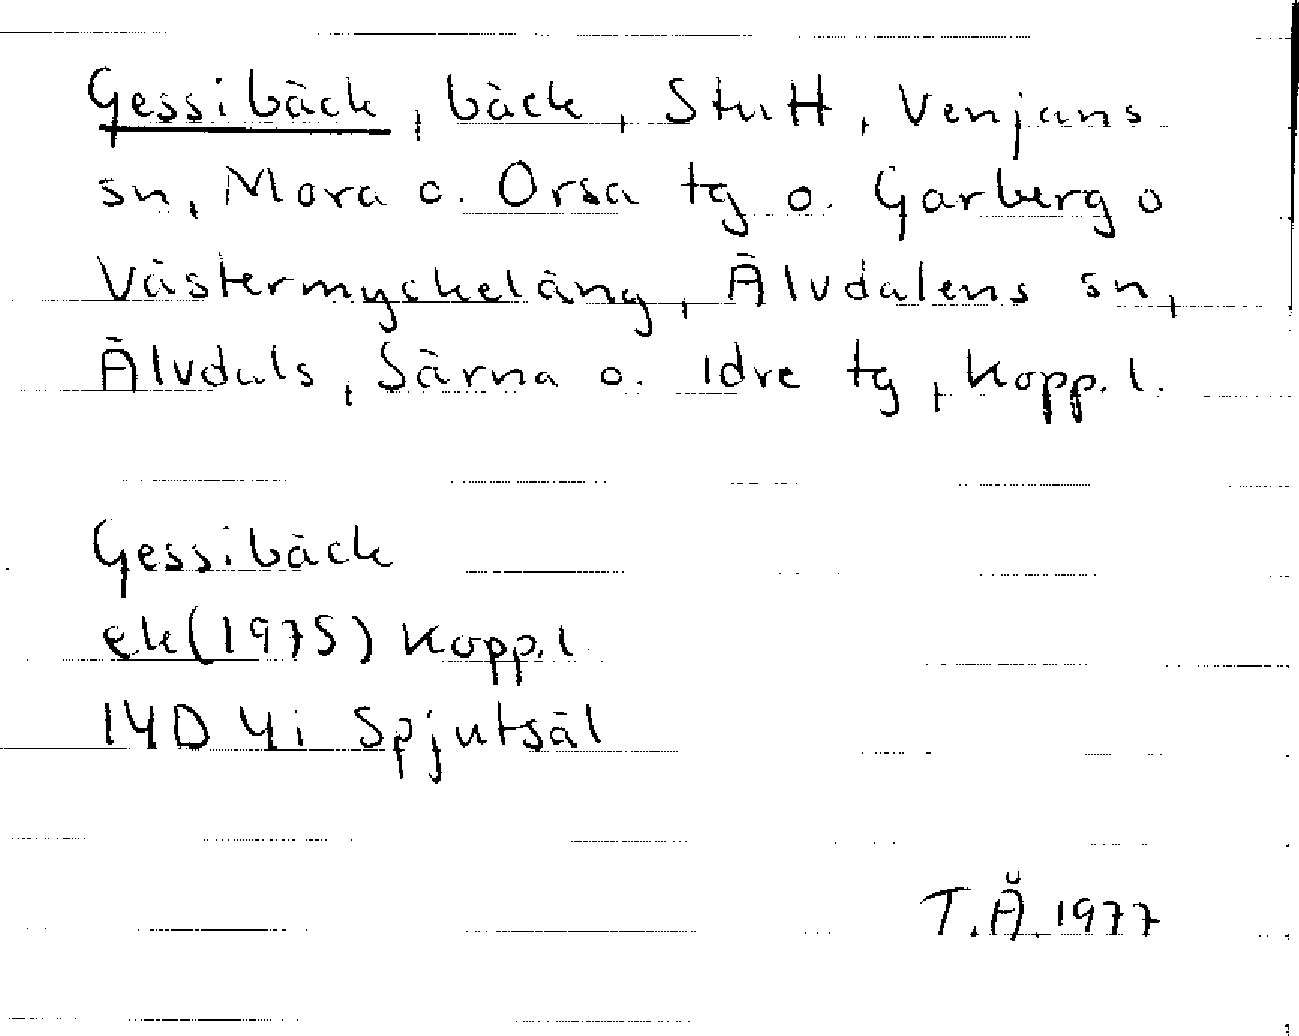 Gessibäck, bäck, Stutt, Venjans
sn, Mora o. Orsa tg o. Garberg o
Västermyckeläng, Älvdalens sn,
Älvdals, Särna o. Idre tg, Kopp. l.
Gessibäck
ek(1975) Kopp.l
14D 4i Spjutsäl
T.Å.1977